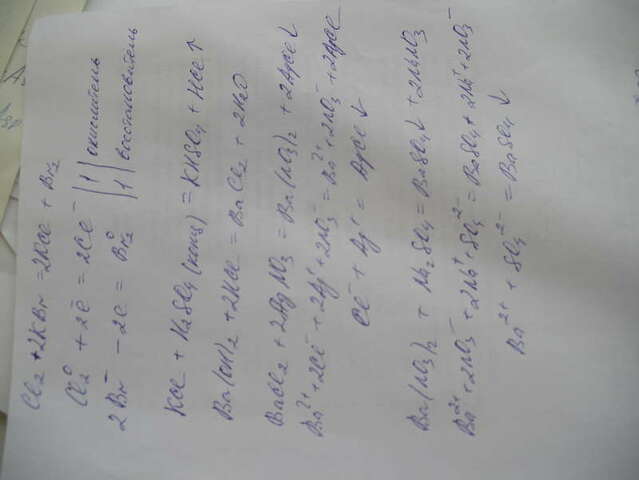 Cl₂ + 2KBr = 2KCl + Br₂
Cl₂⁰ + 2ē = 2Cl⁻ |1| окислитель
2Br⁻ - 2ē = Br₂⁰ |1| восстановитель
KCl + H₂SO₄ (конц) = KHSO₄ + HCl↑
Ba(OH)₂ + 2HCl = BaCl₂ + 2H₂O
BaCl₂ + 2AgNO₃ = Ba(NO₃)₂ + 2AgCl↓
Ba²⁺ + 2Cl⁻ + 2Ag⁺ + 2NO₃⁻ = Ba²⁺ + 2NO₃⁻ + 2AgCl
Cl⁻ + Ag⁺ = AgCl↓
Ba(NO₃)₂ + Na₂SO₄ = BaSO₄↓ + 2NaNO₃
Ba²⁺ + 2NO₃⁻ + 2Na⁺ + SO₄²⁻ = BaSO₄ + 2Na⁺ + 2NO₃⁻
Ba²⁺ + SO₄²⁻ = BaSO₄↓